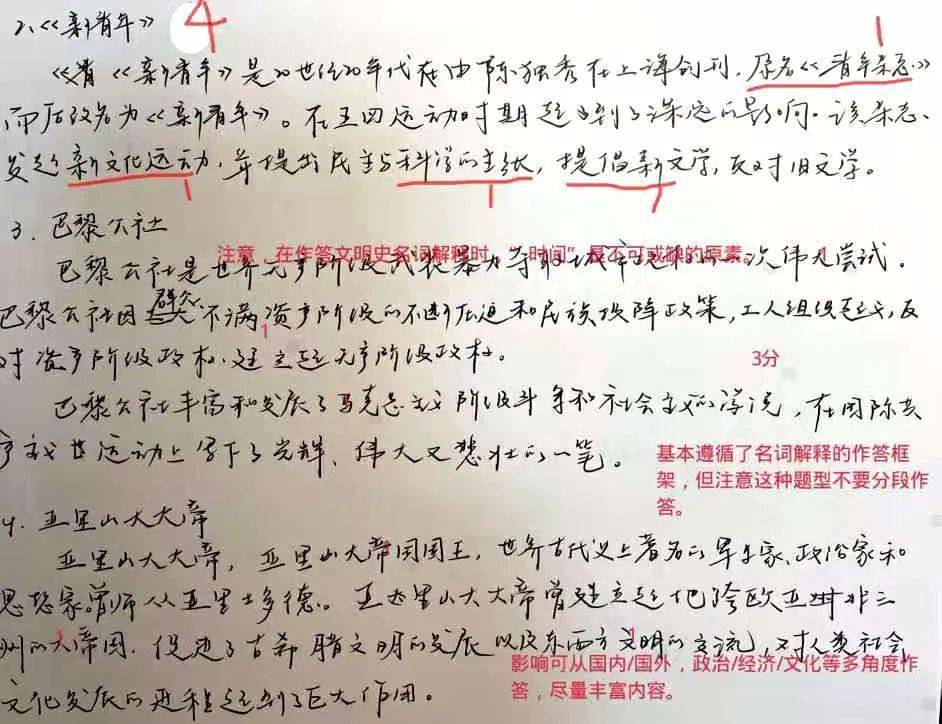 2、《新青年》 4
《新青年》是20世纪20年代在由陈独秀在上海创刊,原名《青年杂志》 1
而后改名为《新青年》。在五四运动时期起到了深远的影响。该杂志
发起新文化运动,并提出民主与科学的主张,提倡新文学,反对旧文学。
1 1 1
3. 巴黎公社
注意,在作答文明史名词解释时,“时间”是不可或缺的原素。
巴黎公社是世界无产阶级武装暴力夺取城市政权的一次伟大尝试。
巴黎公社因群众不满资产阶级的不断压迫和民族投降政策,工人组织起义,反
1
对资产阶级政权,建立起无产阶级政权。
3分
巴黎公社丰富和发展了马克思主义阶级斗争和社会主义的学说,在国际共
产主义运动上写下了光辉、伟大又悲壮的一笔。
基本遵循了名词解释的作答框
架,但注意这种题型不要分段作
答。
4. 亚里山大大帝
亚里山大大帝,亚里山大帝国国王,世界古代史上著名的军事家、政治家和
思想家。曾师从亚里士多德。亚里山大大帝曾建立起地跨欧亚非三
洲的大帝国,促进了古希腊文明的发展以及东西方文明的交流,对人类社会
影响可从国内/国外,政治/经济/文化等多角度作
答,尽量丰富内容。
文化发展的进程起到了巨大作用。